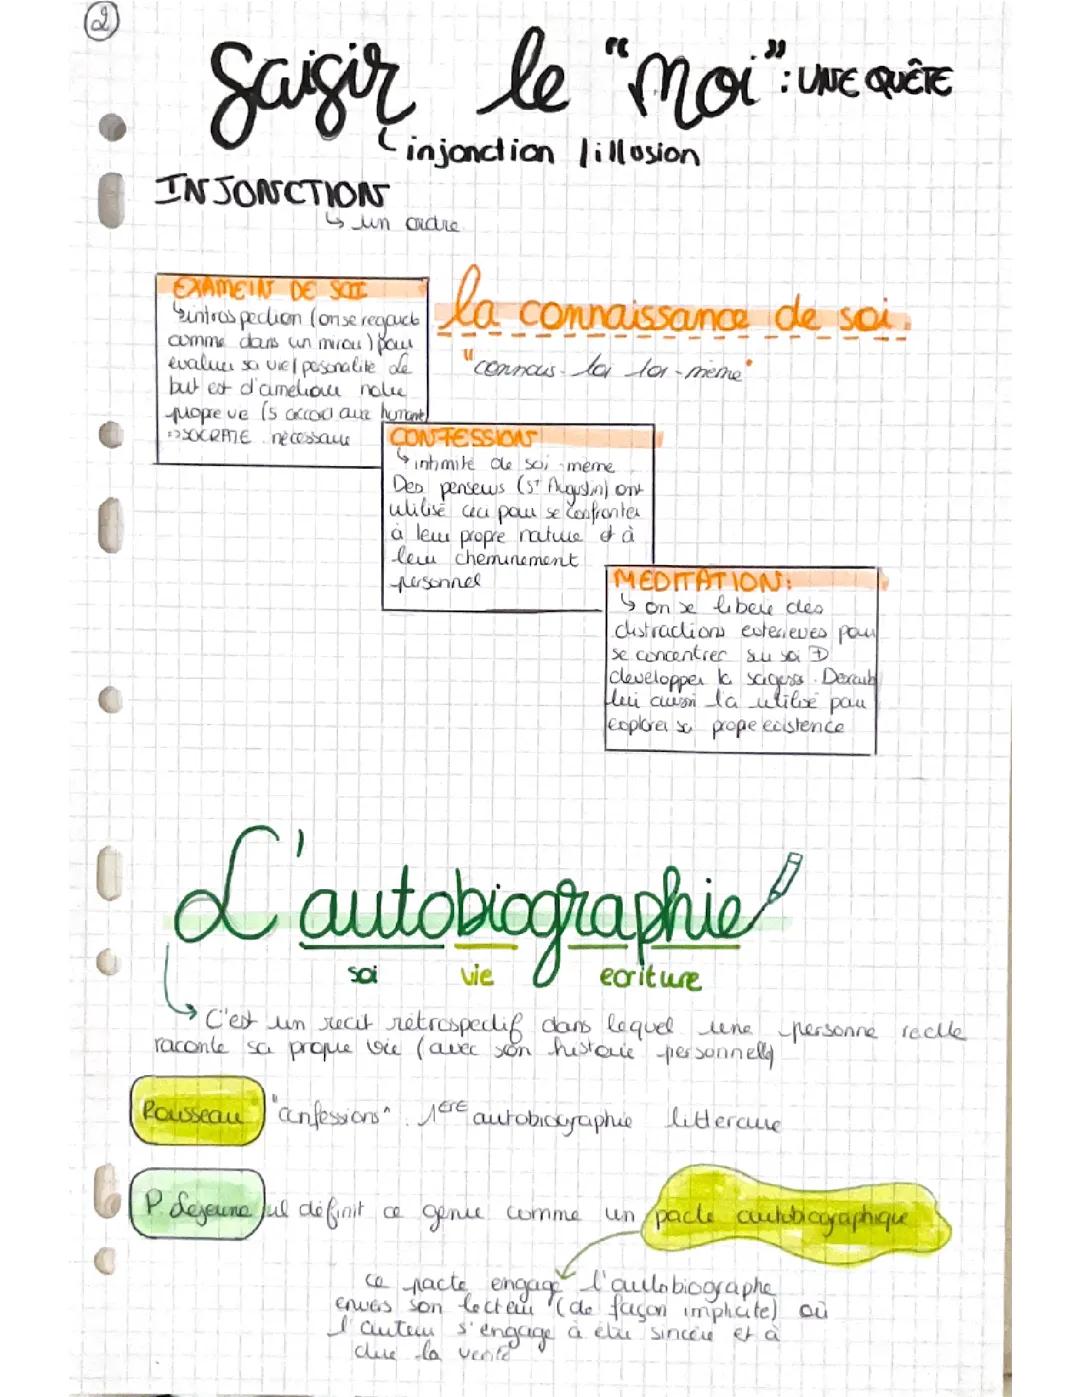 2
Saisir le "Moi": UNE QUÊTE
injonction / illusion
INJONCTION
↳ un ordre
EXAMEIN DE SOI
↳ introspection (on se regarde
comme dans un miroir) pour
evaluer sa vie/personalité le
but est d'ameliorer notre
propre vie (s accord avec humanité)
=> SOCRATE . nécessaire
la connaissance de soi.
"connais-toi toi-même"
CONFESSION
↳ intimité de soi-même
Des penseurs (St Augustin) ont
utilisé ceci pour se confronter
à leur propre nature et à
leur cheminement
personnel
MÉDITATION:
↳ on se libere des
distractions exterieures pour
se concentrer sur soi
developper la sagesse. Descartes
lui aussi l'a utilisé pour
explorer sa propre existence
L'autobiographie
soi vie ecriture
↳ C'est un recit rétrospectif dans lequel une personne reelle
raconte sa propre vie (avec son histoire personnelle)
Rousseau "confessions" 1ERE autobiographie litteraire
P. Lejeune lui définit ce genre comme un pacte autobiographique
ce pacte engage l'autobiographe
envers son lecteur (de façon implicite) où
l'auteur s'engage à être sincère et à
dire la verité